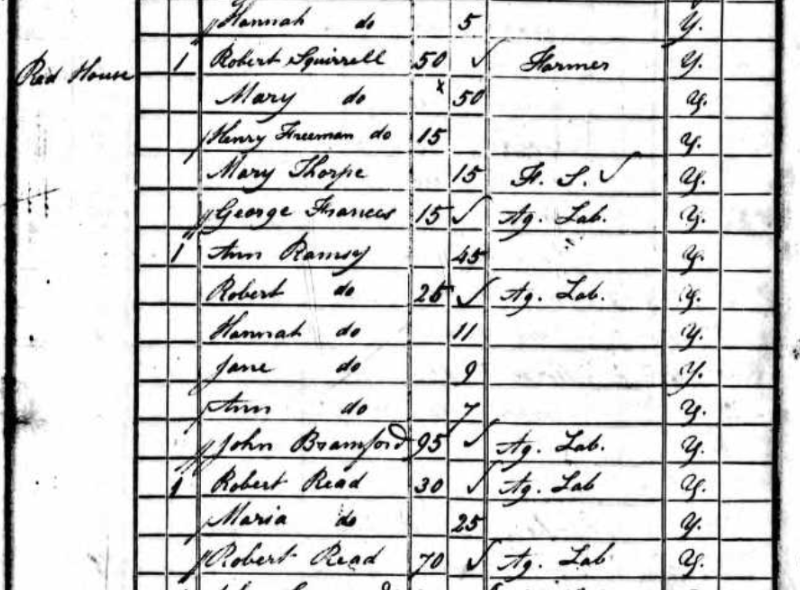 Hannah do 5 Y.
Red House 1 Robert Squirrell 50 Farmer Y.
Mary do 50 Y.
Henry Freeman do 15 Y.
Mary Thorpe 15 F. S. Y.
George Frances 15 Ag. Lab. Y.
1 Ann Ramsey 45 Y.
Robert do 25 Ag. Lab. Y.
Hannah do 11 Y.
Jane do 9 Y.
Ann do 7 Y.
John Bramford 95 Ag. Lab. Y.
1 Robert Read 30 Ag. Lab Y.
Maria do 25 Y.
Robert Read 70 Ag. Lab Y.